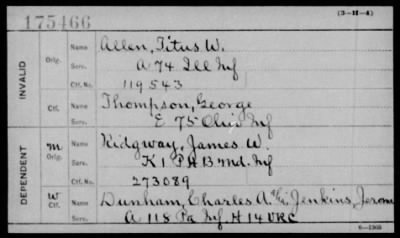 (3-H-4)
175466
INVALID
Orig. Name Allen, Titus W.
Serv. A 74 Ill Inf
Ctf. No. 119543
Ctf. Name Thompson, George
Serv. E 75 Ohio Inf
DEPENDENT
M Orig. Name Ridgway, James W.
Serv. K 1 P H B Md. Inf
Ctf. No. 273089
W Ctf. Name Dunham, Charles A. Jenkins, Jerom
Serv. A 118 Pa Inf, H 14 VRC